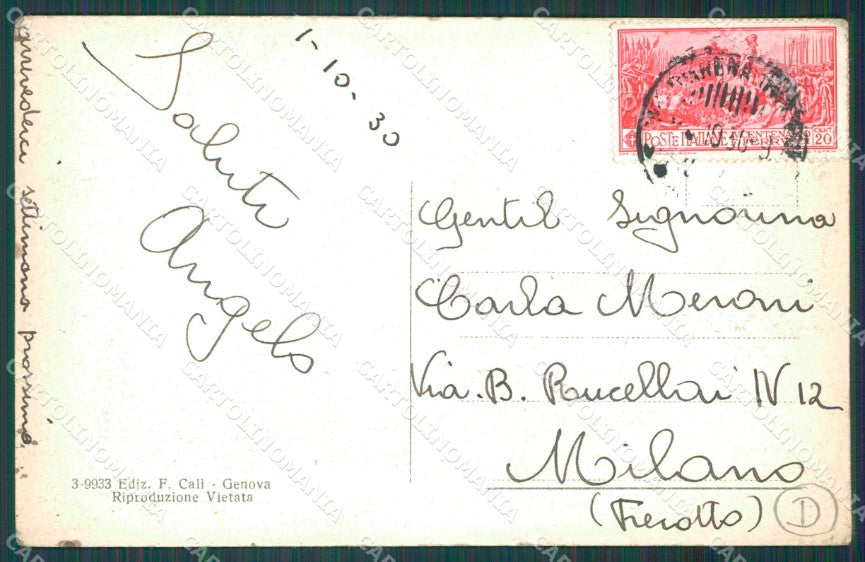 1-10-30
Saluti
Angelo
arrivederci settimana prossima
Gentil Signorina
Carla Meroni
Via. B. Rucellai N 12
Milano
(Precotto)
D
3-9933 Ediz. F. Calì - Genova
Riproduzione Vietata
POSTE ITALIANE
20
CARTOLINOMANIA